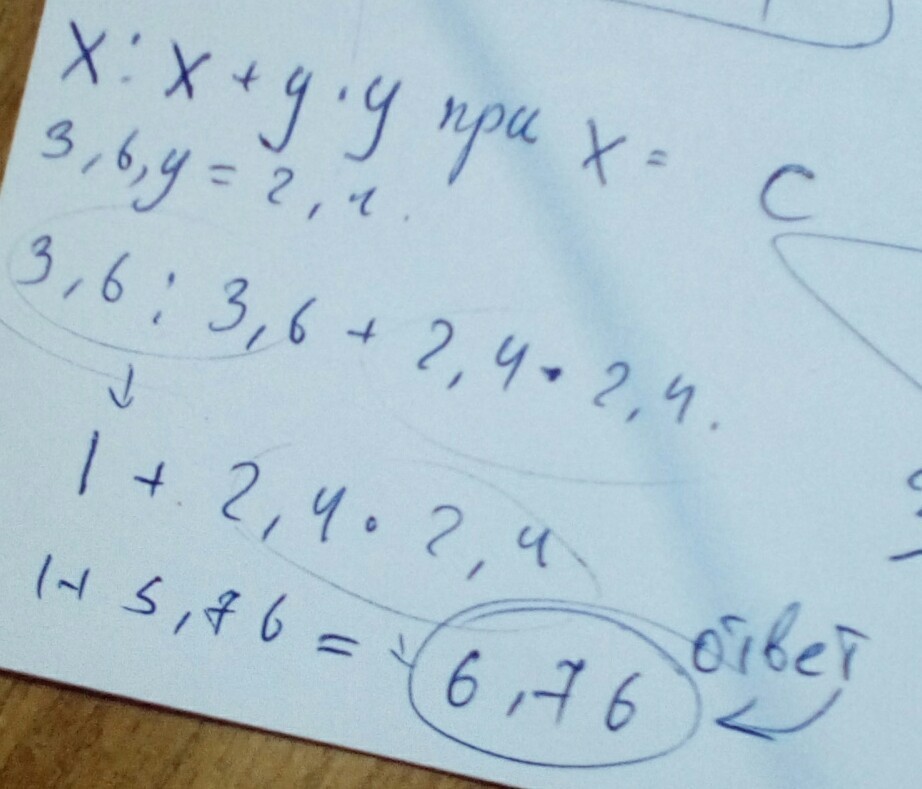 x : x + y · y при x =
3,6, y = 2,4.
C
3,6 : 3,6 + 2,4 · 2,4.
↓
1 + 2,4 · 2,4
1 + 5,76 = 6,76 ответ